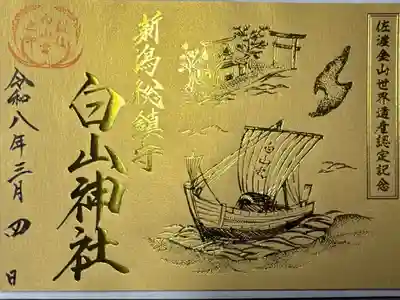 佐渡金山世界遺産認定記念
新潟総鎮守
白山神社
白山丸
令和八年三月四日